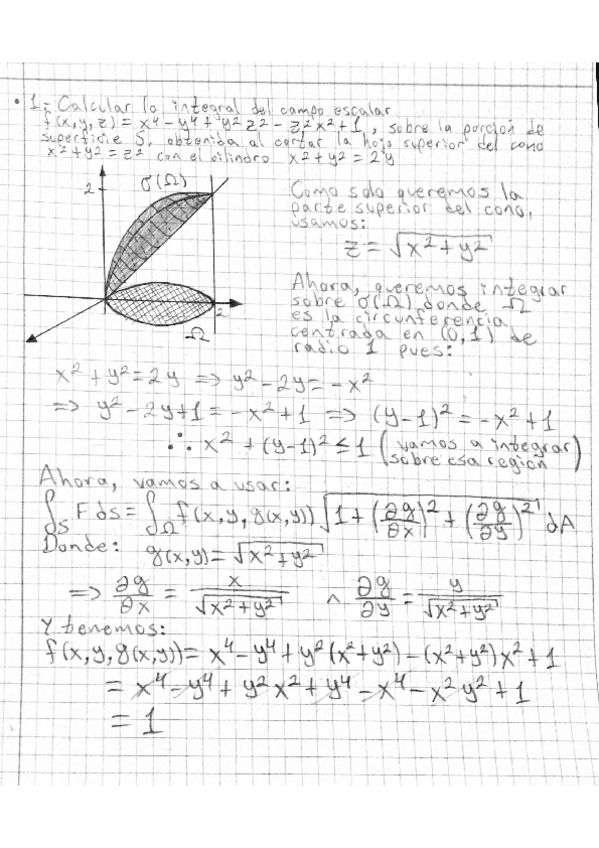 1.- Calcular la integral del campo escalar
f(x,y,z) = x⁴ - y⁴ + y²z² - z²x² + 1, sobre la porción de
superficie S, obtenida al cortar la hoja superior del cono
x² + y² = z² con el cilindro x² + y² = 2y
2
σ(Ω)
2
Ω
Como solo queremos la
parte superior del cono,
usamos:
z = √(x² + y²)
Ahora, queremos integrar
sobre σ(Ω) donde Ω
es la circunferencia
centrada en (0,1) de
radio 1 pues:
x² + y² = 2y ⇒ y² - 2y = -x²
⇒ y² - 2y + 1 = -x² + 1 ⇒ (y-1)² = -x² + 1
∴ x² + (y-1)² ≤ 1 (vamos a integrar
sobre esa región)
Ahora, vamos a usar:
∫_S F ds = ∫_Ω f(x,y,g(x,y)) √(1 + (∂g/∂x)² + (∂g/∂y)²) dA
Donde: g(x,y) = √(x² + y²)
⇒ ∂g/∂x = x/√(x² + y²) ∧ ∂g/∂y = y/√(x² + y²)
Y tenemos:
f(x,y,g(x,y)) = x⁴ - y⁴ + y²(x² + y²) - (x² + y²)x² + 1
= x⁴ - y⁴ + y²x² + y⁴ - x⁴ - x²y² + 1
= 1